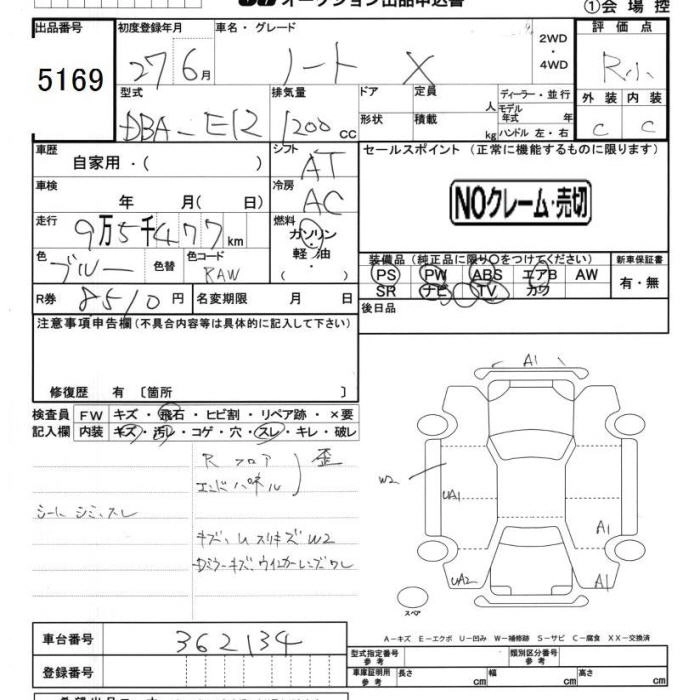 オークション出品申込書
①会場控
出品番号 初度登録年月 車名・グレード 2WD・4WD 評価点
5169 27 6月 ノート X R小
型式 排気量 ドア 定員 人 ディーラー・並行 外装 内装
DBA-E12 1200 cc 形状 積載 kg モデル年式 年 C C
ハンドル 左・右
車歴 自家用・( ) シフト AT セールスポイント (正常に機能するものに限ります)
車検 年 月(日) 冷房 AC NOクレーム・売切
走行 9万5千477km 燃料 ガソリン・軽油・( )
色 ブルー 色替 色コード RAW
装備品 (純正品に限り○をつけてください) 新車保証書
PS PW ABS エアB AW 有・無
SR ナビ TV カワ
R券 8510円 名変期限 月 日 後日品
注意事項申告欄(不具合内容等は具体的に記入して下さい)
修復歴 有 〔箇所 〕
検査員 FW キズ・飛石・ヒビ割・リペア跡・×要
記入欄 内装 キズ・汚レ・コゲ・穴・スレ・キレ・破レ
Rフロア
エンドパネル 歪
シート シミ、スレ
キズ、U スリキズ W2
ミラーキズ、ウインカーレンズワレ
A1
W2
UA1
A1
UA2
A1
スペア
A-キズ E-エクボ U-凹み W-補修跡 S-サビ C-腐食 XX-交換済
車台番号 362134
型式指定番号 参考 類別区分番号 参考
登録番号
車庫証明用 参考 長さ cm 幅 cm 高さ cm